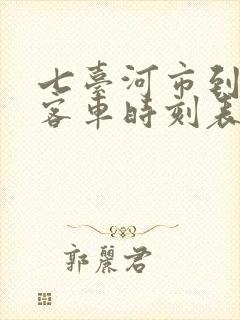 七臺河市到
客車時刻表
郭麗君